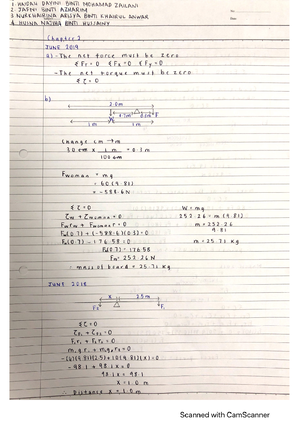 1. HASDAN DAYINI BINTI MOHAMAD ZAILANI
2. JAFNI BINTI AZHARIM
3. NURKHAIRINA ARISYA BINTI KHAIRUL ANWAR
4. HUSNA NAJWA BINTI HUSAINY
Chapter 2
JUNE 2019
a) - The net force must be zero
ΣF = 0 ΣFx = 0 ΣFy = 0
- The net torque must be zero
Στ = 0
b)
2.0m
0.7m 0.3m
1m 1m
Change cm → m
30 cm × 1 m = 0.3 m
100 cm
Fwoman = mg
= 60(9.81)
= -588.6N
Στ = 0
τw + τwoman = 0
Fwrw + Fwomanr = 0
Fw(0.7) + (-588.6)(0.3) = 0
Fw(0.7) - 176.58 = 0
Fw(0.7) = 176.58
Fw = 252.26N
∴ mass of board = 25.71 kg
W = mg
252.26 = m(9.81)
m = 252.26
9.81
m = 25.71 kg
JUNE 2018
x 2.5m
F1 F2
Στ = 0
τF1 + τF2 = 0
F1r1 + F2r2 = 0
m1gr1 + m2gr2 = 0
-(4)(9.81)(2.5) + 10(9.81)(x) = 0
-98.1 + 98.1x = 0
98.1x = 98.1
x = 1.0 m
∴ Distance x = 1.0 m
Scanned with CamScanner